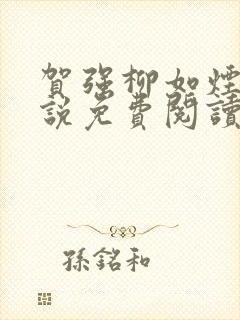 賀强柳如煙
說免費閱讀
孫銘和